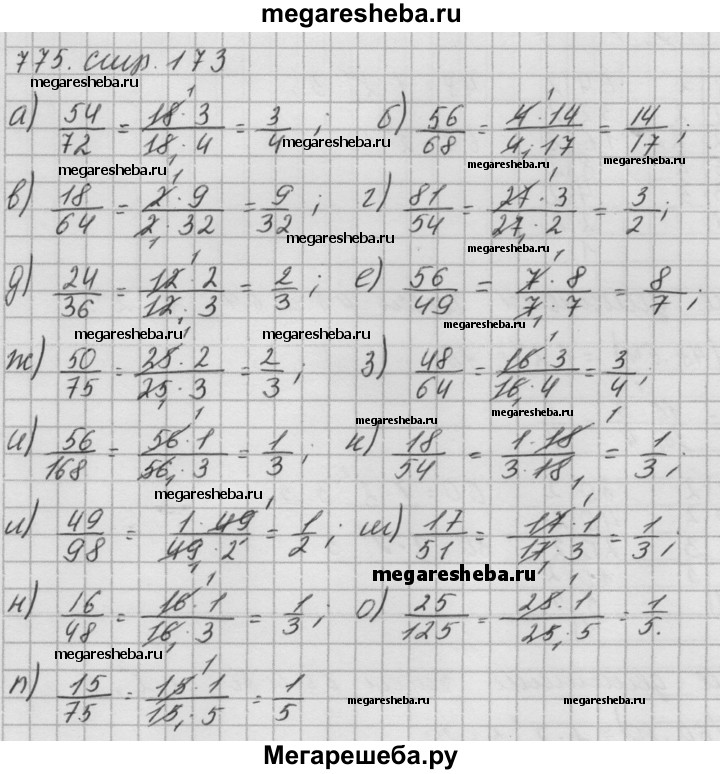 megaresheba.ru
775. стр. 173
megaresheba.ru megaresheba.ru
а) 54/72 = 18·3/18·4 = 3/4 ; б) 56/68 = 4·14/4·17 = 14/17 ;
megaresheba.ru megaresheba.ru megaresheba.ru
в) 18/64 = 2·9/2·32 = 9/32 ; г) 81/54 = 27·3/27·2 = 3/2 ;
megaresheba.ru megaresheba.ru
д) 24/36 = 12·2/12·3 = 2/3 ; е) 56/49 = 7·8/7·7 = 8/7 ;
megaresheba.ru megaresheba.ru megaresheba.ru
ж) 50/75 = 25·2/25·3 = 2/3 ; з) 48/64 = 16·3/16·4 = 3/4 ;
megaresheba.ru megaresheba.ru
и) 56/168 = 56·1/56·3 = 1/3 ; к) 18/54 = 1·18/3·18 = 1/3 ;
megaresheba.ru
л) 49/98 = 1·49/49·2 = 1/2 ; м) 17/51 = 17·1/17·3 = 1/3 ;
megaresheba.ru
н) 16/48 = 16·1/16·3 = 1/3 ; о) 25/125 = 25·1/25·5 = 1/5.
megaresheba.ru
п) 15/75 = 15·1/15·5 = 1/5
megaresheba.ru megaresheba.ru
Мегарешеба.ру